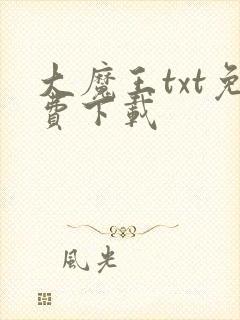 大魔王txt免
費下載
風光